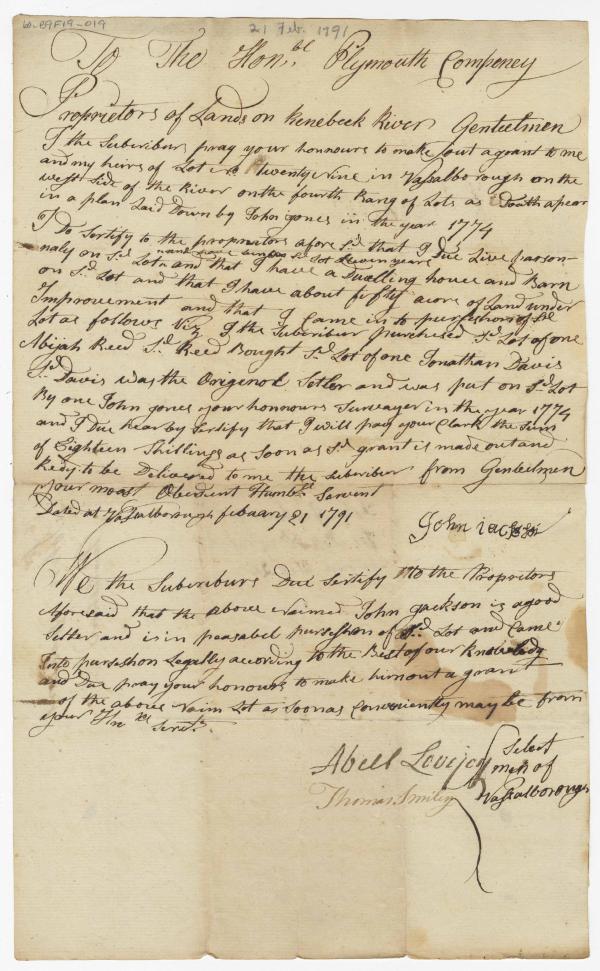 60-B9F19-019
21 Feb. 1791
To The Hon.bl Plymouth Compeney
Proprietors of Lands on Kenebeck River Genteelmen
I the Suberibur pray your honnours to make out a grant to me
and my heirs of Lot No twenty nine in Vassalborough on the
west side of the River on the fourth Rang of Lots as Douth apear
in a plan Laid Down by John Jones in the year 1774
I Do Sertify to the proprietors afore sd that I Due Live parson-
naly on Sd Lot and that I have a Dwelling house and Barn
on Sd Lot and that I have about fifty acors of Land under
Improvement and that I Came in to purseshon of sd
Lot as follows Viz I the Suberibur purchesed Sd Lot of one
Abijah Reed Sd Reed Bought Sd Lot of one Jonathan Davis
Sd Davis was the Origenol Setler and was put on Sd Lot
By one John Jones your honnours Survayer in the year 1774
and I Due hear by Sertify that I will pay your Clark the Sum
of Eighteen Shillings as Soon as Sd grant is made out and
Redy to be Delivered to me the Suberibur from Genteelmen
your moast Obedient Humbl Servent
Dated at Vassalborough febuary 21 1791
John Jackson
We the Suberiburs Due Sertify to the Propritors
Aforesaid that the above Naimed John Jackson is a good
Setler and is in peasabel purseshon of Sd Lot and Came
Into purseshon Legally according to the Best of our Knoledg
and Due pray your honours to make him out a grant
of the above Naim Lot as Soon as Conveniently may be from
your Servts
Abell Lovejoy
Select
men of
Vassalborough
Thomas Smiley